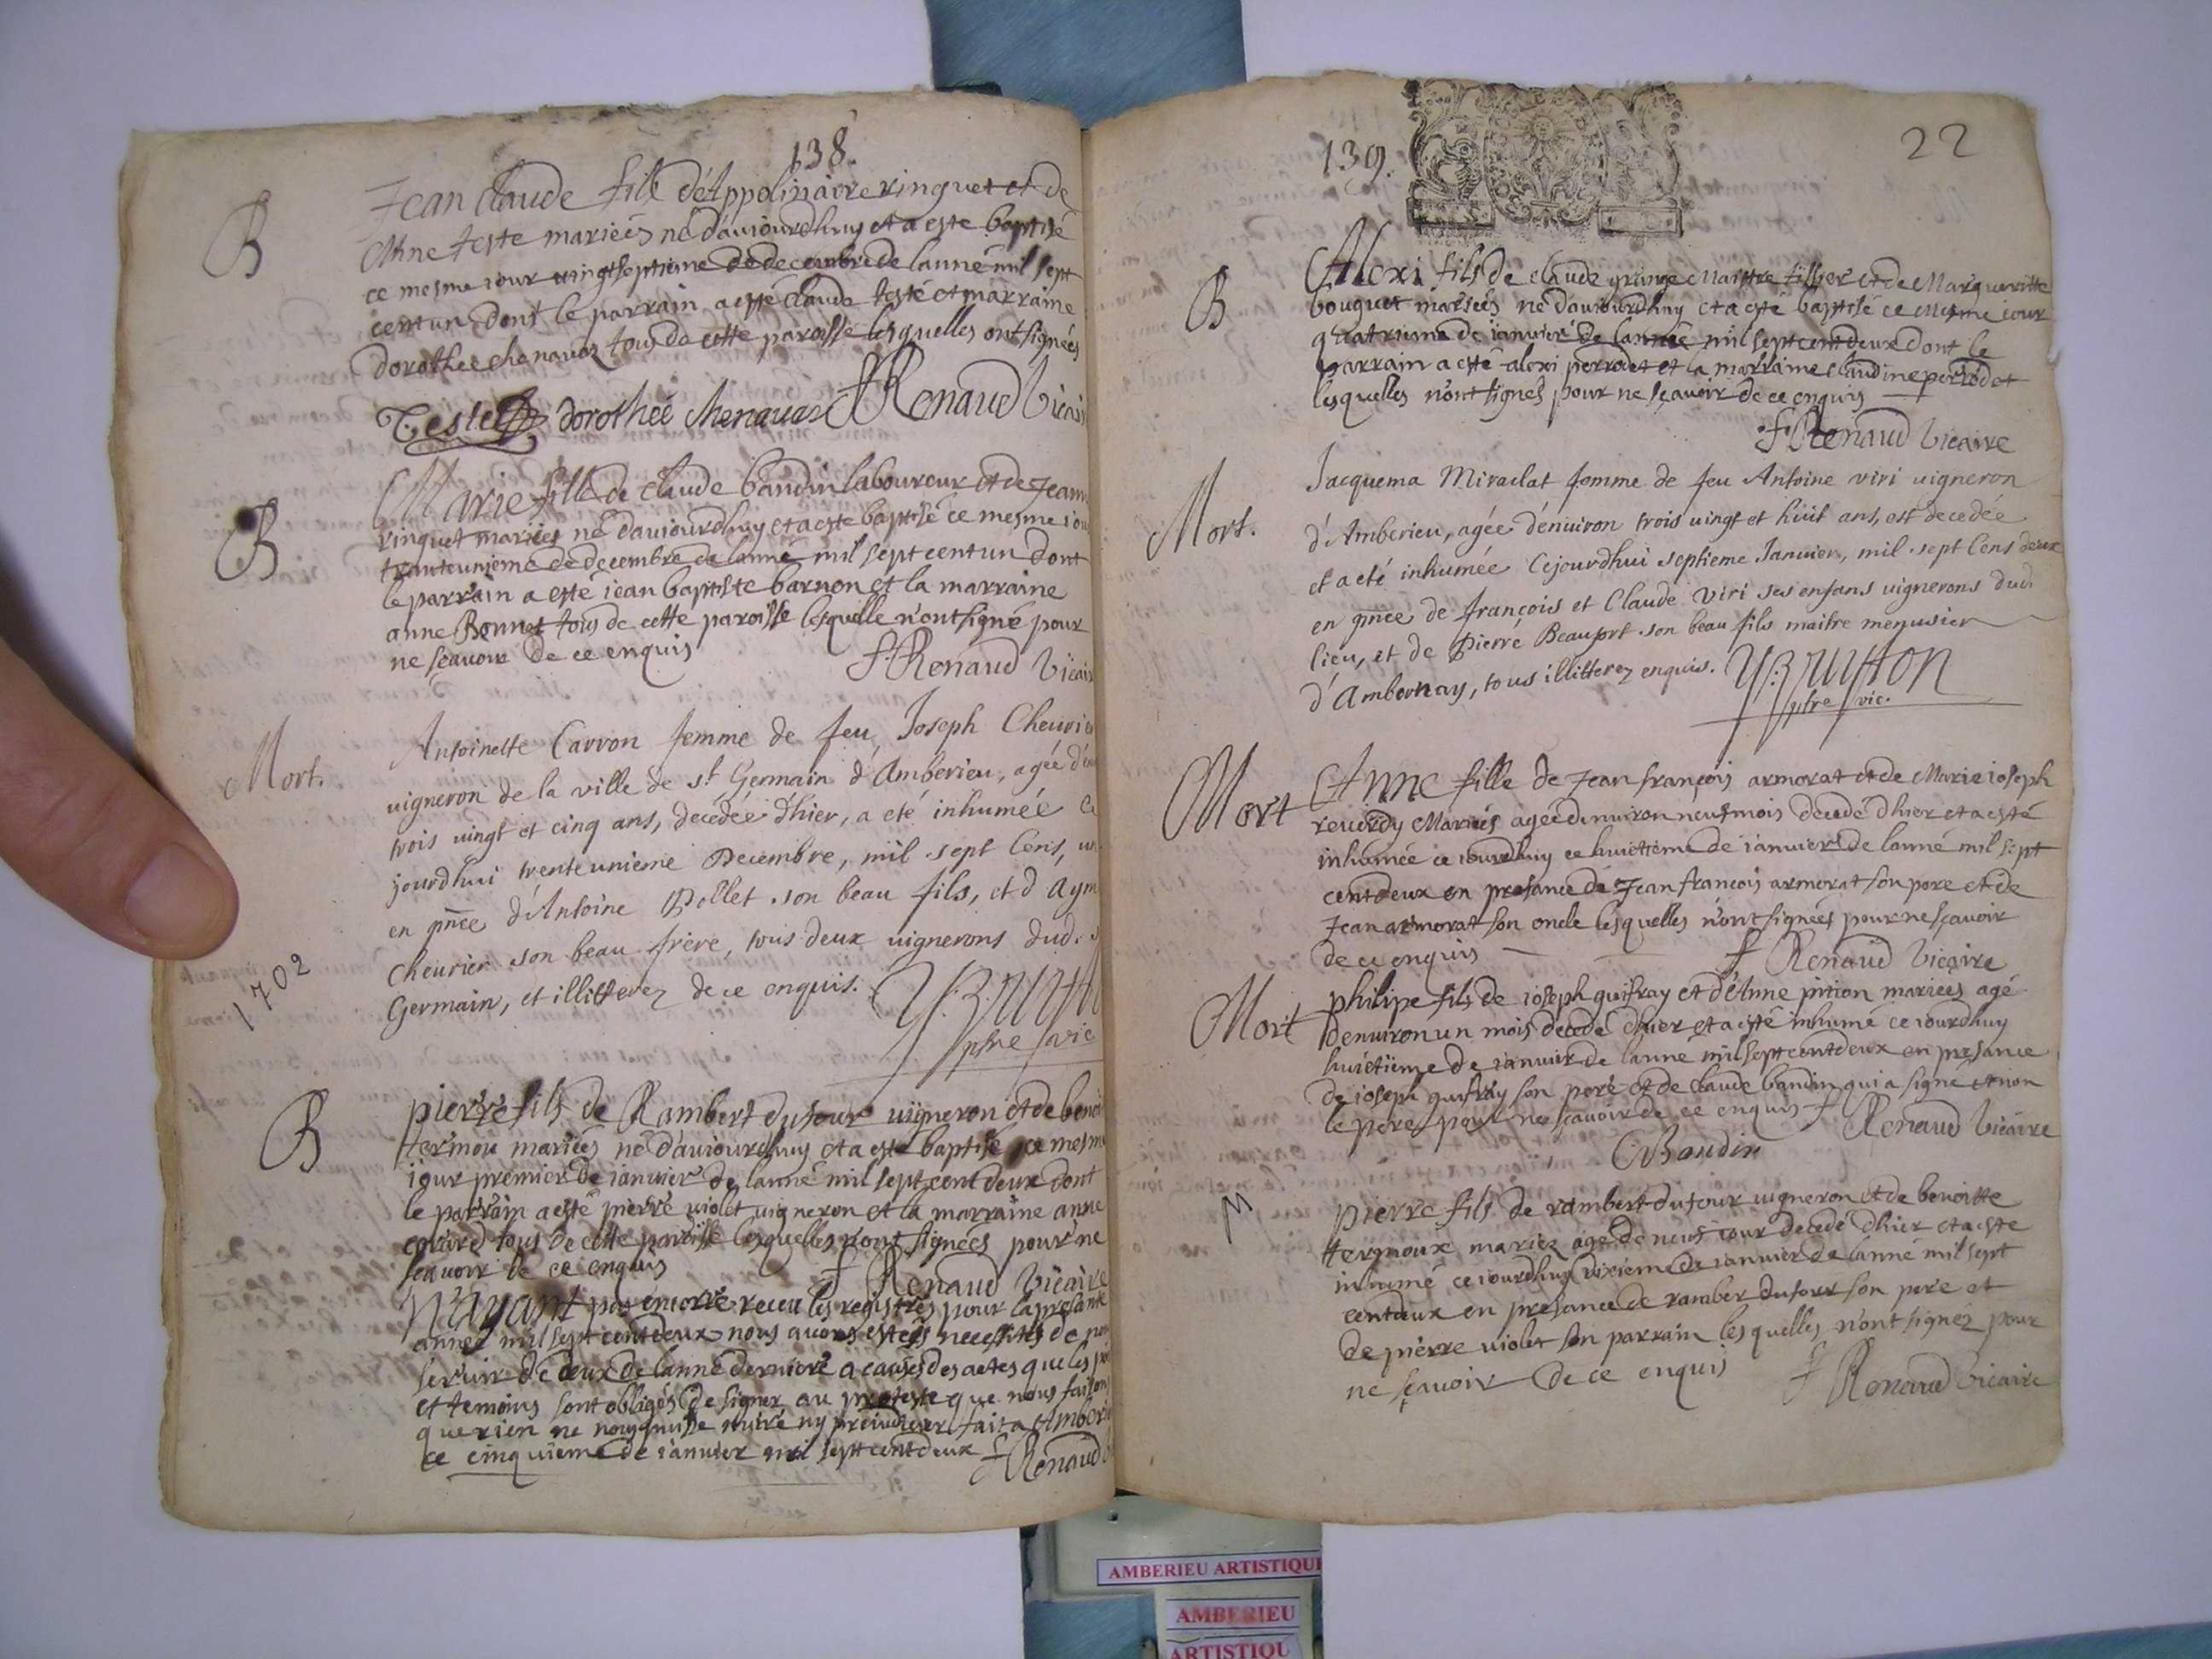 138.
B
Jean claude fils d'Appolinaire ringuet et de
Anne teste mariées né d'auiourdhuy et a este baptisé
ce mesme iour uingtseptieme de decembre de lanné mil sept
cent un dont le parrain a esté claude testé et marraine
dorothee chenauaz tous de cette paroisse lesquelles ont signées
Teste dorotheé chenauaz f Renaud Vicai
B
Marie fille de claude baudin laboureur et de Jeann
ringuet mariées né dauiourdhuy et a este baptisé ce mesme iou
trenteunieme de decembre de lanné mil sept cent un dont
le parrain a esté iean baptiste barnon et la marraine
anne Bonnet tous de cette paroisse lesquelle n'ont signé pour
ne sçauoir de ce enquis
f. Renaud Vicair
Mort.
Antoinette Carron femme de feu Joseph Cheurier
uigneron de la ville de st Germain d'Amberieu, agée d'en
trois uingt et cinq ans, decedée d'hier, a eté inhumée Ce
jourdhui trenteunieme Decembre, mil sept Cens, un
en pnce d'Antoine Pollet son beau fils, et d'Aym
Cheurier son beau frere, tous deux uignerons dud. s
Germain, et illitterez de ce enquis.
ptre vic
1702
B
pierre fils de Rambert dufour uigneron et de benoi
termou mariées né d'auiourdhuy et a este baptisé ce mesme
iour premier de ianuier de lanné mil sept cent deux dont
le parrain a esté pierre uiolet uigneron et la marraine anne
tous de cette paroisse lesquelles n'ont signées pour ne
scauoir de ce enquis
f Renaud Vicaire
N'ayant pas encorre receu les registres pour la presante
année mil sept cent deux nous auons estées necessités de
seruir de ceux de lanné derniere a causes des actes que les
et temoins sont obligés de signer au proteste que nous faisons
que rien ne nous puisse nuire ny preiudicier fait a Amberi
ce cinquieme de ianuier mil sept cent deux f Renaud
139.
22
B
Alexi fils de claude grange Maistre et de Margueritte
bouquet mariées né dauiourdhuy et a esté baptisé ce mesme iour
quatrieme de ianuier de lanneé mil sept cent deux dont le
parrain a esté alexi perrodet et la marraine claudine perrodet
lesquelles n'ont signés pour ne sçauoir de ce enquis
f. Renaud Vicaire
Mort.
Jacquema Miraclat femme de feu Antoine viri uigneron
d'Amberieu, agée d'enuiron trois uingt et huit ans, est decedée
et a eté inhumée Cejourdhui septieme Januier, mil sept Cens deux
en pnce de françois et Claude viri ses enfans uignerons dud.
lieu, et de Pierre Beaufort son beau fils maitre menusier
d'Ambornay, tous illitterez enquis.
ptre vic.
Mort
Anne fille de Jean françois armorat et de Marie ioseph
reuerdy Mariées agée denuiron neuf mois decedé dhier et a esté
inhumée ce iourdhuy ce huictieme de ianuier de lanné mil sept
cent deux en presance de Jean francois armorat son pere et de
Jean armorat son oncle lesquelles n'ont signées pour ne sçauoir
de ce enquis
f Renaud Vicaire
Mort
philipe fils de ioseph guifray et d'Anne pition mariees agé
denuiron un mois decedé dhier et a esté inhumé ce iourdhuy
huictieme de ianuier de lanne mil sept cent deux en presance
de ioseph guifray son pere et de claude baudin qui a signé et non
le pere pour ne sçauoir de ce enquis f Renaud Vicaire
C Baudin
M
pierre fils de rambert dufour uigneron et de benoitte
termoux mariez agé de neuf iour decedé dhier et a este
inhumé ce iourdhuy dixieme de ianuier de lanné mil sept
cent deux en presance de ramber dufour son pere et
de pierre uiolet son parrain lesquelles n'ont signéz pour
ne sçauoir de ce enquis
f Renaud Vicaire
AMBERIEU ARTISTIQUE
AMBERIEU
ARTISTIQU